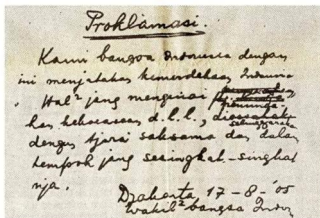 Proklamasi
Kami bangsa Indonesia dengan
ini menjatakan kemerdekaan Indonesia
Hal² jang mengenai
kan kekoeasaan d.l.l., diselenggarakan
dengan tjara saksama dan dalam
tempoh jang sesingkat-singkat
nja.
Djakarta, 17 - 8 - '05
Wakil² bangsa Indon